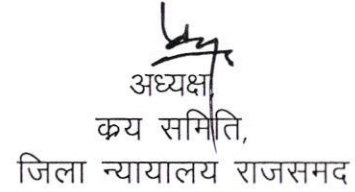 अध्यक्ष
क्रय समिति,
जिला न्यायालय राजसमद